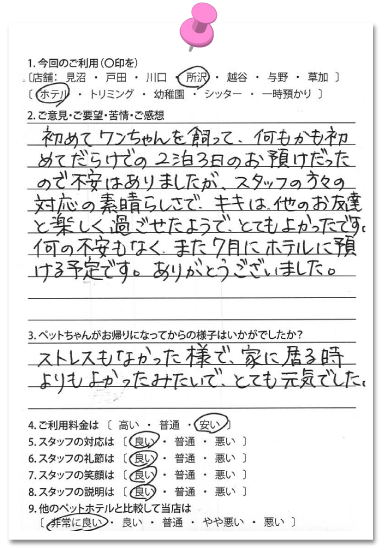 1. 今回のご利用(〇印を)
〔店舗： 見沼 ・ 戸田 ・ 川口 ・ 所沢 ・ 越谷 ・ 与野 ・ 草加 〕
〔 ホテル ・ トリミング ・ 幼稚園 ・ シッター ・ 一時預かり 〕
2. ご意見・ご要望・苦情・ご感想
初めてワンちゃんを飼って、何もかも初
めてだらけでの2泊3日のお預けだった
ので不安はありましたが、スタッフの方々の
対応の素晴らしさで、キキは、他のお友達
と楽しく過ごせたようで、とてもよかったです。
何の不安もなく、また7月にホテルに預
ける予定です。ありがとうございました。
3. ペットちゃんがお帰りになってからの様子はいかがでしたか？
ストレスもなかった様で、家に居る時
よりもよかったみたいで、とても元気でした。
4. ご利用料金は 〔 高い ・ 普通 ・ 安い 〕
5. スタッフの対応は 〔 良い ・ 普通 ・ 悪い 〕
6. スタッフの礼節は 〔 良い ・ 普通 ・ 悪い 〕
7. スタッフの笑顔は 〔 良い ・ 普通 ・ 悪い 〕
8. スタッフの説明は 〔 良い ・ 普通 ・ 悪い 〕
9. 他のペットホテルと比較して当店は
〔 非常に良い ・ 良い ・ 普通 ・ やや悪い ・ 悪い 〕